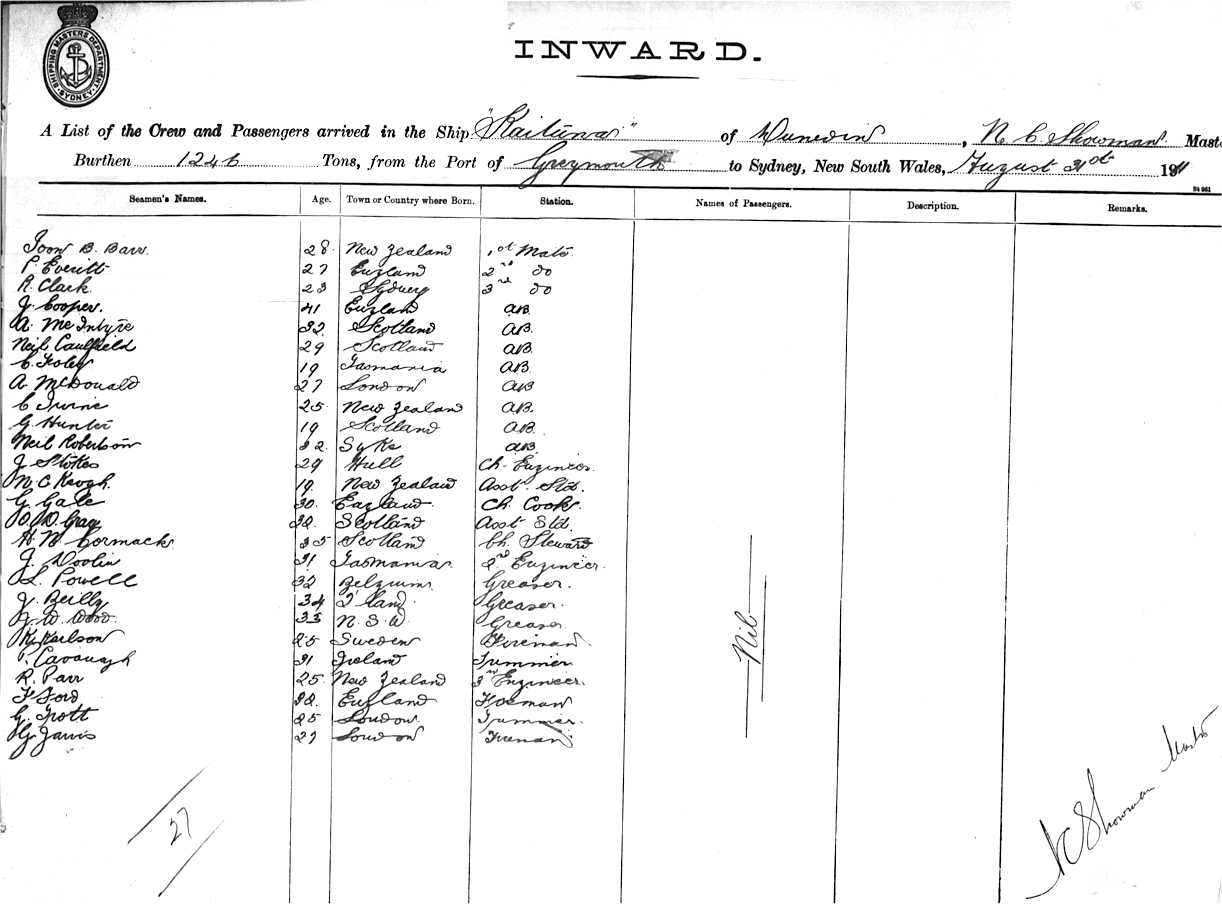 SHIPPING MASTERS DEPARTMENT SYDNEY
INWARD.
A List of the Crew and Passengers arrived in the Ship "Kaituna" of Dunedin, N. C. Showman Maste
Burthen 1246 Tons, from the Port of Greymouth to Sydney, New South Wales, August 31st 1911
S4 961
Seamen's Names. Age. Town or Country where Born. Station. Names of Passengers. Description. Remarks.
B. Barr. 28. New Zealand 1st Mate
P. Everitt 27 England 2nd do
R. Clark. 23 Sydney 3rd do
J. Cooper. 41 England AB.
A. McIntyre 32. Scotland AB.
Neil Caulfield 29 Scotland AB.
C. Foley 19 Tasmania AB.
A McDonald 27 London AB
C Irvine 25. New Zealand AB.
G. Hunter 19 Scotland AB.
Neil Robertson 32. AB.
J Stokes 29 Hull Ch. Engineer.
M. C Keogh. 19. New Zealand Asst. Std.
G. Gale 30. England. Ch. Cook.
Gray 32. Scotland Asst Std.
H. Mc Cormack. 35 Scotland Ch. Steward
J. Doolin 31 Tasmania. 2nd Engineer.
L. Powell 32 Belgium Greaser.
J. Reilly 34 I'land. Greaser.
J. W. Wood. 33 N. S. W. Greaser.
K. Karlson 25 Sweden Fireman.
P. Cavanagh 31 Ireland Trimmer
R. Parr 25. New Zealand 3rd Engineer.
F Ford 32. England
G. Trott 25 London. Trimmer.
G. Jarvis 27 London Fireman
Nil
27
N C Showman Master